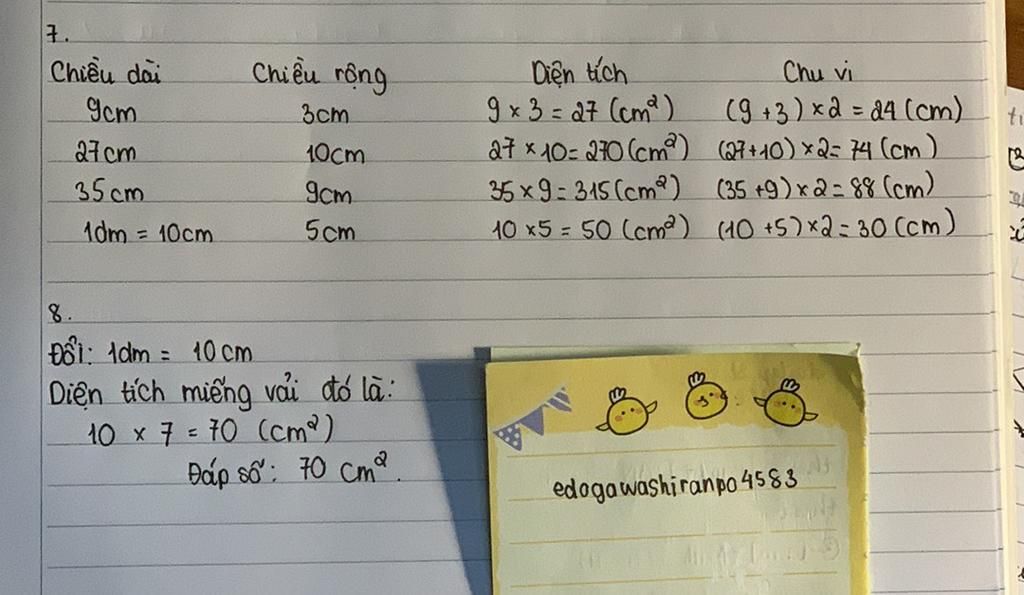 7.
Chiều dài Chiều rộng Diện tích Chu vi
9cm 3cm 9 × 3 = 27 (cm²) (9 +3) ×2 = 24 (cm)
27cm 10cm 27 × 10 = 270 (cm²) (27+10) ×2 = 74 (cm)
35cm 9cm 35 × 9 = 315 (cm²) (35 +9) ×2 = 88 (cm)
1dm = 10cm 5cm 10 ×5 = 50 (cm²) (10 +5) ×2 = 30 (cm)
8.
Đổi: 1dm = 10cm
Diện tích miếng vải đó là:
10 × 7 = 70 (cm²)
Đáp số: 70 cm².
edogawashiranpo4583